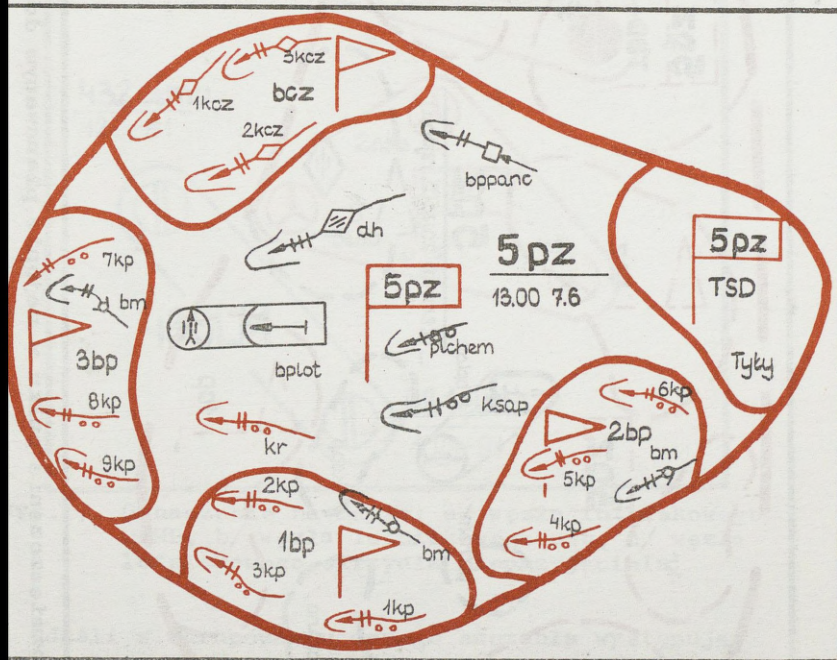 3kcz
1kcz
bcz
2kcz
bppanc
dh
5pz
13.00 7.6
5pz
TSD
Tyły
7kp
bm
3bp
8kp
9kp
bplot
5pz
plchem
ksap
kr
6kp
2bp
bm
5kp
4kp
2kp
1bp
bm
3kp
1kp